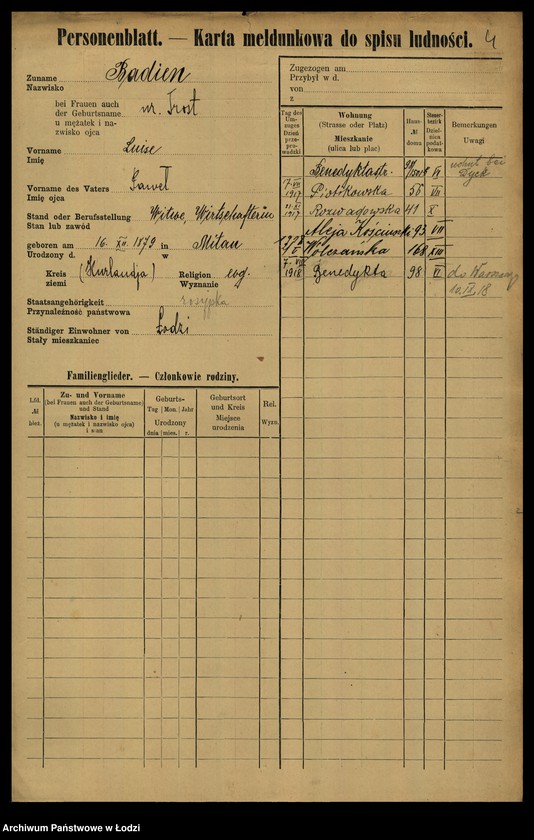 Personenblatt. — Karta meldunkowa do spisu ludności. 4
Zuname Radien
Nazwisko
bei Frauen auch
der Geburtsname
u mężatek i na-
zwisko ojca
ur. Trost
Vorname Luise
Imię
Vorname des Vaters Paweł
Imię ojca
Stand oder Berufsstellung Witwe, Wirtschafterin
Stan lub zawód
geboren am 16. XII. 1879 in Mitau
Urodzony d. w
Kreis (Kurlandja) Religion ewg.
ziemi Wyznanie
Staatsangehörigkeit rosyjska
Przynależność państwowa
Ständiger Einwohner von Łodzi
Stały mieszkaniec
Familienglieder. — Członkowie rodziny.
Lfd.
№
bież.
Zu- und Vorname
(bei Frauen auch der Geburtsname)
und Stand
Nazwisko i imię
(u mężatek i nazwisko ojca)
i stan
Geburts-
Tag Mon. Jahr
Urodzony
dnia mies. r.
Geburtsort
und Kreis
Miejsce
urodzenia
Rel.
Wyzn.
Zugezogen am
Przybył w d.
von
z
Tag des
Um-
zuges
Dzień
prze-
prowadzki
Wohnung
(Strasse oder Platz)
Mieszkanie
(ulica lub plac)
Haus-
№
domu
Steuer-
bezirk
Dzielnica
podatkowa
Bemerkungen
Uwagi
Benedyktastr. VI wohnt bei
Dyck
7. VII 1917 Piotrkowska VIII
1917 Rozwadowska 41 X
Aleja Kościuszki 93 VII
Wólczańska 168 XIII
7. VIII 1918 Benedykta 98 VI do Warszawy
10.IX.18
Archiwum Państwowe w Łodzi